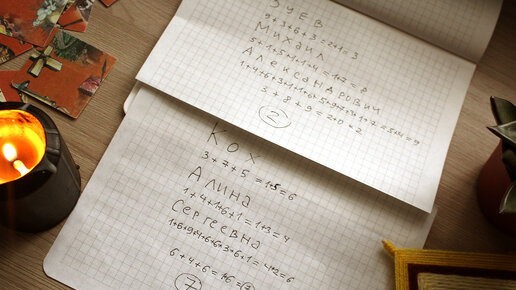 Зуев
9+3+6+3=2+1=3
Михаил
5+1+5+1+1+4=1+7=8
Александрович
5+8+9=2+0=2
2
Кох
3+7+5=1+5=6
Алина
1+4+1+6+1=1+3=4
Сергеевна
1+6+9+4+6+6+3+6+1=4+2=6
6+4+6=1+6=7
7